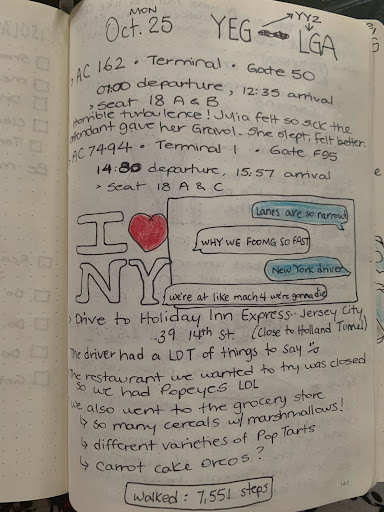 MON
Oct. 25
YEG
YYZ
LGA
> AC 162 • Terminal • Gate 50
07:00 departure, 12:35 arrival
> seat 18 A & B
Horrible turbulence! Julia felt so sick the
attendant gave her Gravol - She slept, felt better.
> AC 7494 • Terminal 1 • Gate F95
14:30 departure, 15:57 arrival
> seat 18 A & C
I
NY
Lanes are so narrow
WHY WE FOOMG SO FAST
New York driver
we're at like mach 4 we're gonna die
> Drive to Holiday Inn Express - Jersey City
39 14th st. (Close to Holland Tunnel)
The driver had a LOT of things to say
The restaurant we wanted to try was closed
so we had Popeyes LOL
We also went to the grocery store
↳ so many cereals w/ marshmallows!
↳ different varieties of Pop Tarts
↳ Carrot cake Oreos?
Walked : 7,551 steps